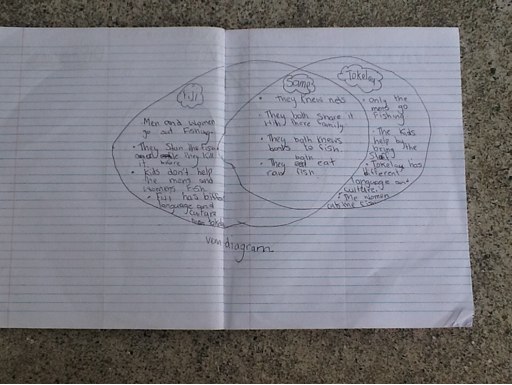 Fiji
Men and women
go out Fishing
They Stan the Fish
they kill
it
kids don't help
the mens and
womens Fish
Fiji has
language and
culture
Same
They knews nets
They both Share it
with there family
They both knows
to fish
both
They eat
raw fish
Tokelau
only the
mens go
Fishing
The Kids
help by
bring the
Stuff
Tokelau has
different
language and
culture
The women
venn diagram